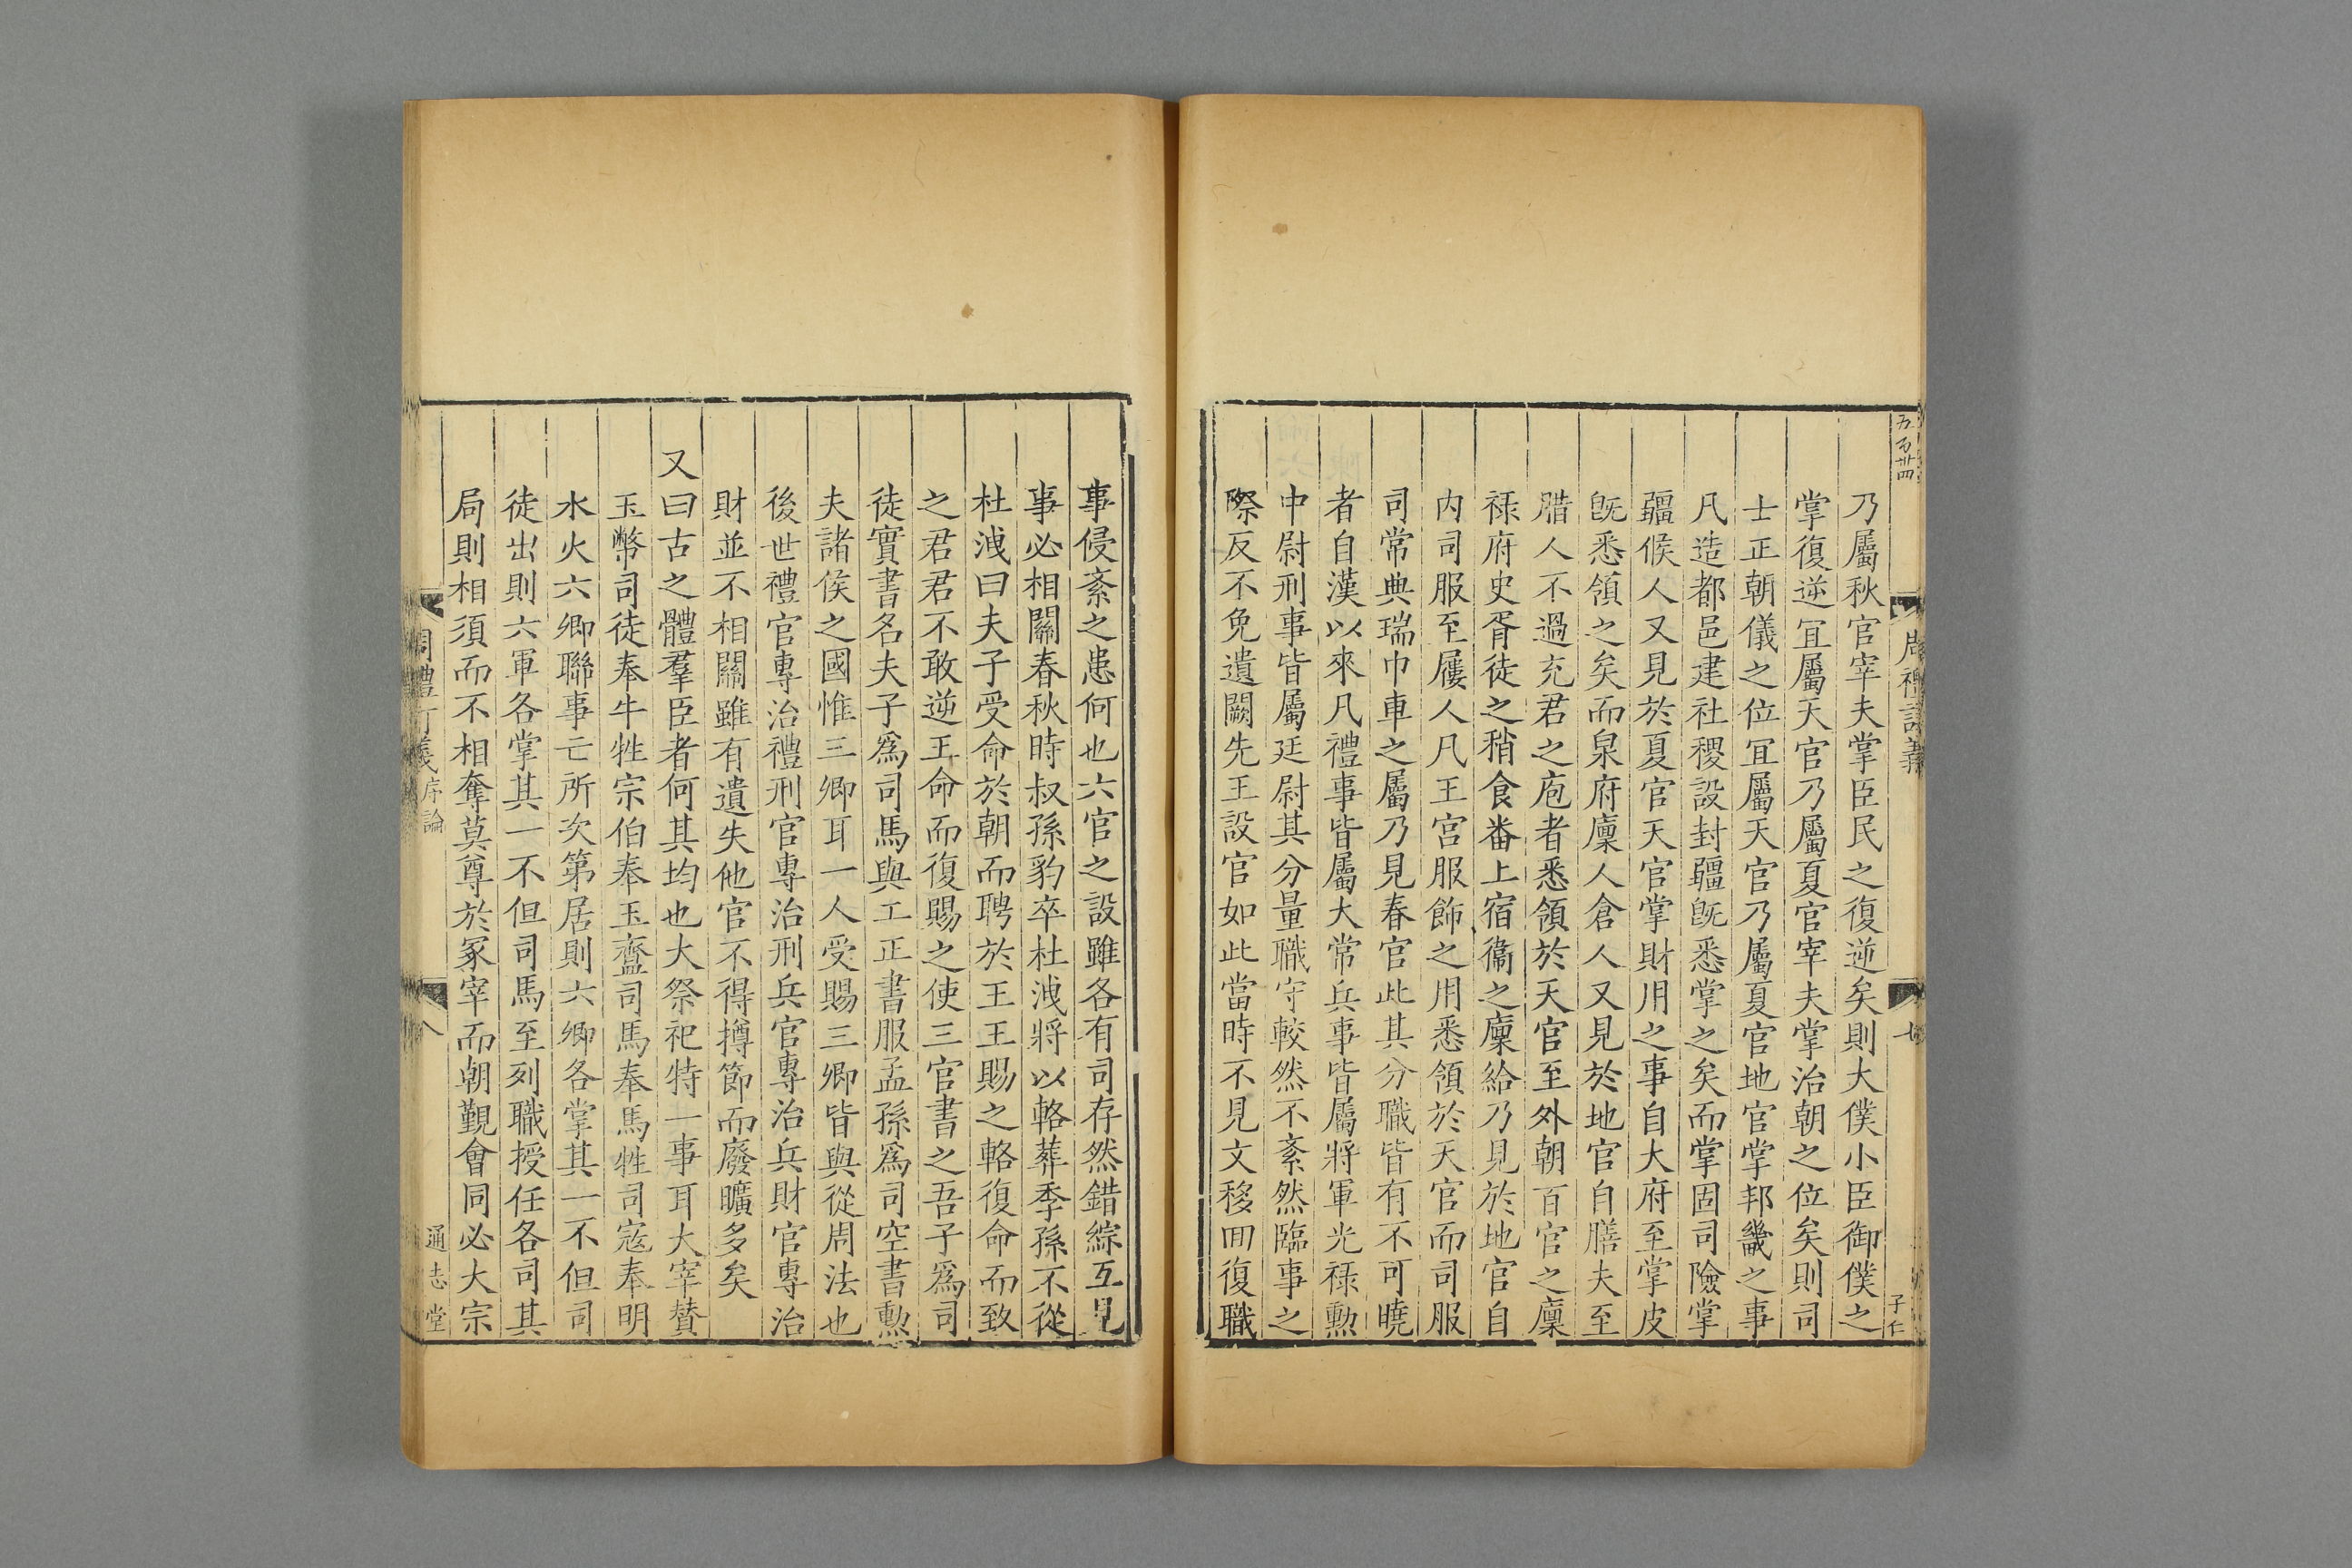 五百卅四
周禮訂義
七
子仁
乃屬秋官宰夫掌臣民之復逆矣則大僕小臣御僕之
掌復逆冝屬天官乃屬夏官宰夫掌治朝之位矣則司
士正朝儀之位冝屬天官乃屬夏官地官掌邦畿之事
凡造都邑建社稷設封疆旣悉掌之矣而掌固司險掌
疆候人又見於夏官天官掌財用之事自大府至掌皮
旣悉領之矣而泉府廩人倉人又見於地官自膳夫至
腊人不過充君之庖者悉領於天官至外朝百官之廩
祿府史胥徒之稍食畨上宿衞之廩給乃見於地官自
内司服至屨人凡王宫服飾之用悉領於天官而司服
司常典瑞巾車之屬乃見春官此其分職皆有不可曉
者自漢以來凡禮事皆屬大常兵事皆屬將軍光祿勲
中尉刑事皆屬廷尉其分量職守較然不紊然臨事之
際反不免遺闕先王設官如此當時不見文移囬復職
事侵紊之患何也六官之設雖各有司存然錯綜互見
事必相關春秋時叔孫豹卒杜洩將以輅葬季孫不從
杜洩曰夫子受命於朝而聘於王王賜之輅復命而致
之君君不敢逆王命而復賜之使三官書之吾子爲司
徒實書名夫子爲司馬與工正書服孟孫爲司空書勲
夫諸侯之國惟三卿耳一人受賜三卿皆與從周法也
後世禮官專治禮刑官專治刑兵官專治兵財官專治
財並不相關雖有遺失他官不得撙節而廢曠多矣
又曰古之體羣臣者何其均也大祭祀特一事耳大宰贊
玉幣司徒奉牛牲宗伯奉玉齍司馬奉馬牲司寇奉明
水火六卿聯事亡所次第居則六卿各掌其一不但司
徒出則六軍各掌其一不但司馬至列職授任各司其
局則相須而不相奪莫尊於冢宰而朝覲會同必大宗
周禮訂義序論
八
通志堂